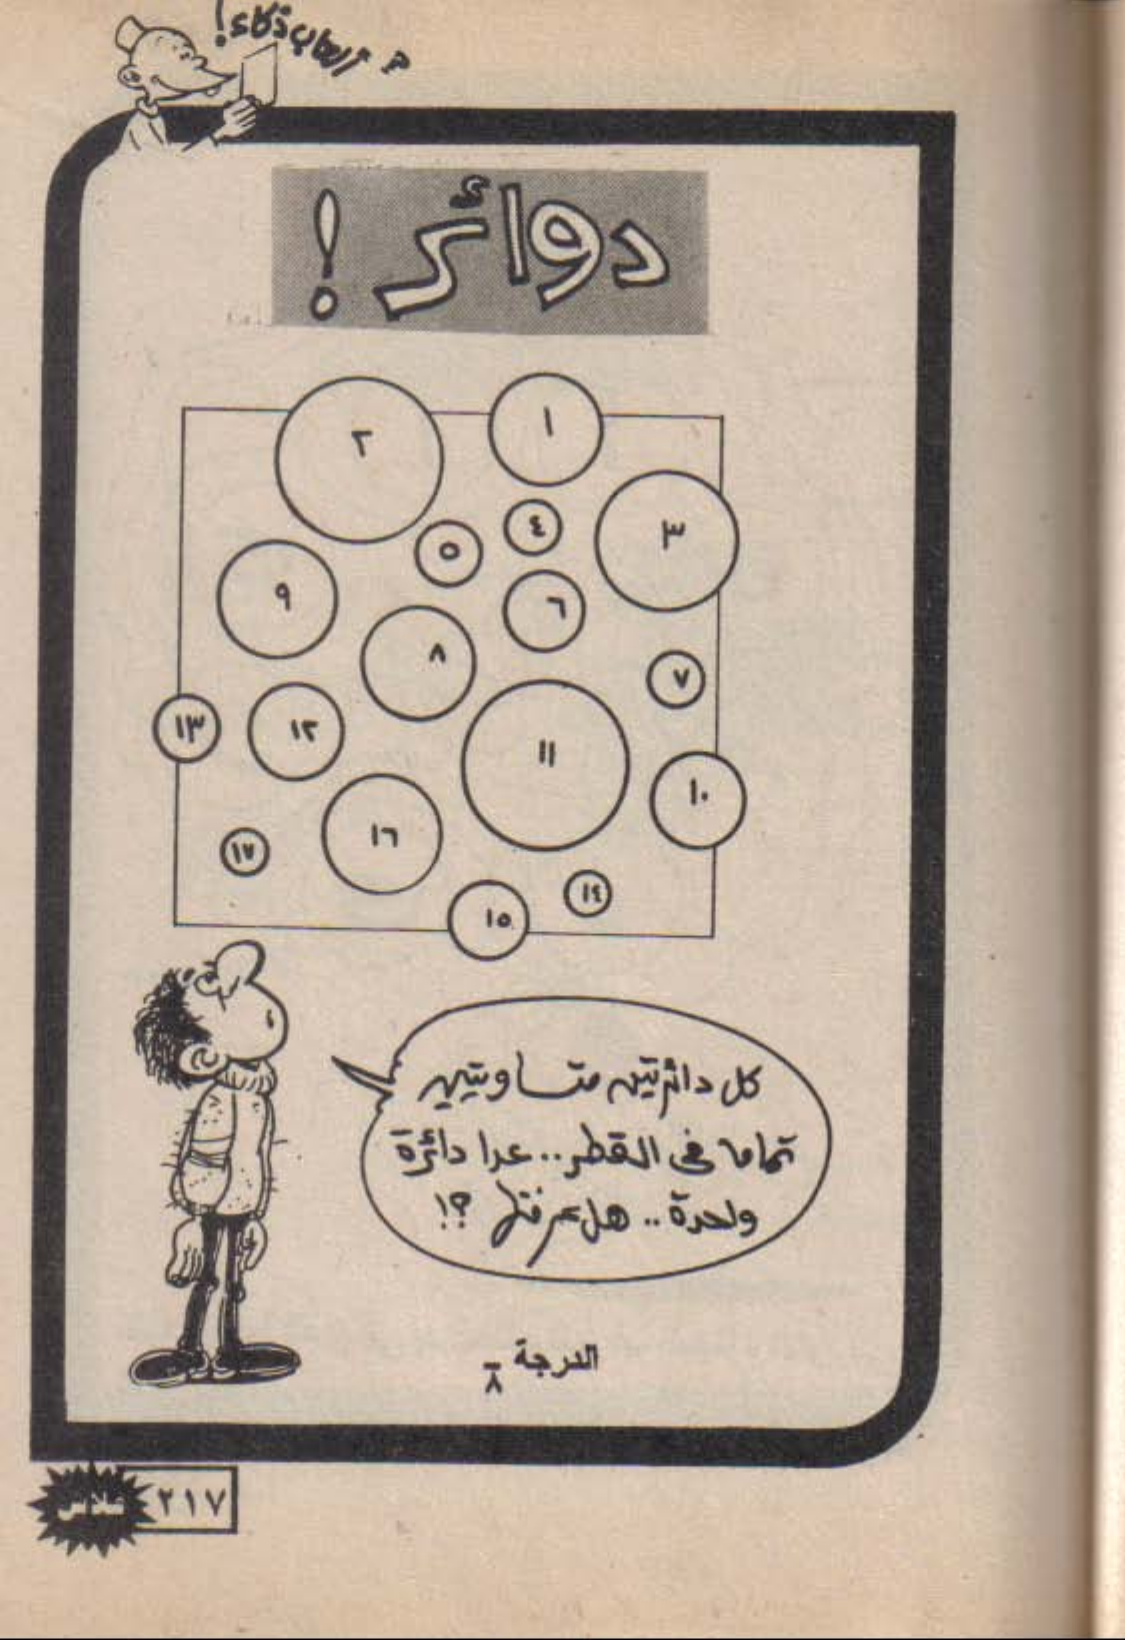 ألعاب ذكاء!
دوائر !
١
٢
٣
٤
٥
٦
٧
٨
٩
١٠
١١
١٢
١٣
١٤
١٥
١٦
١٧
كل دائرتين متساويتين
تماما في القطر.. عدا دائرة
واحدة.. هل عرفتها ؟!
الدرجة ٨
٢١٧